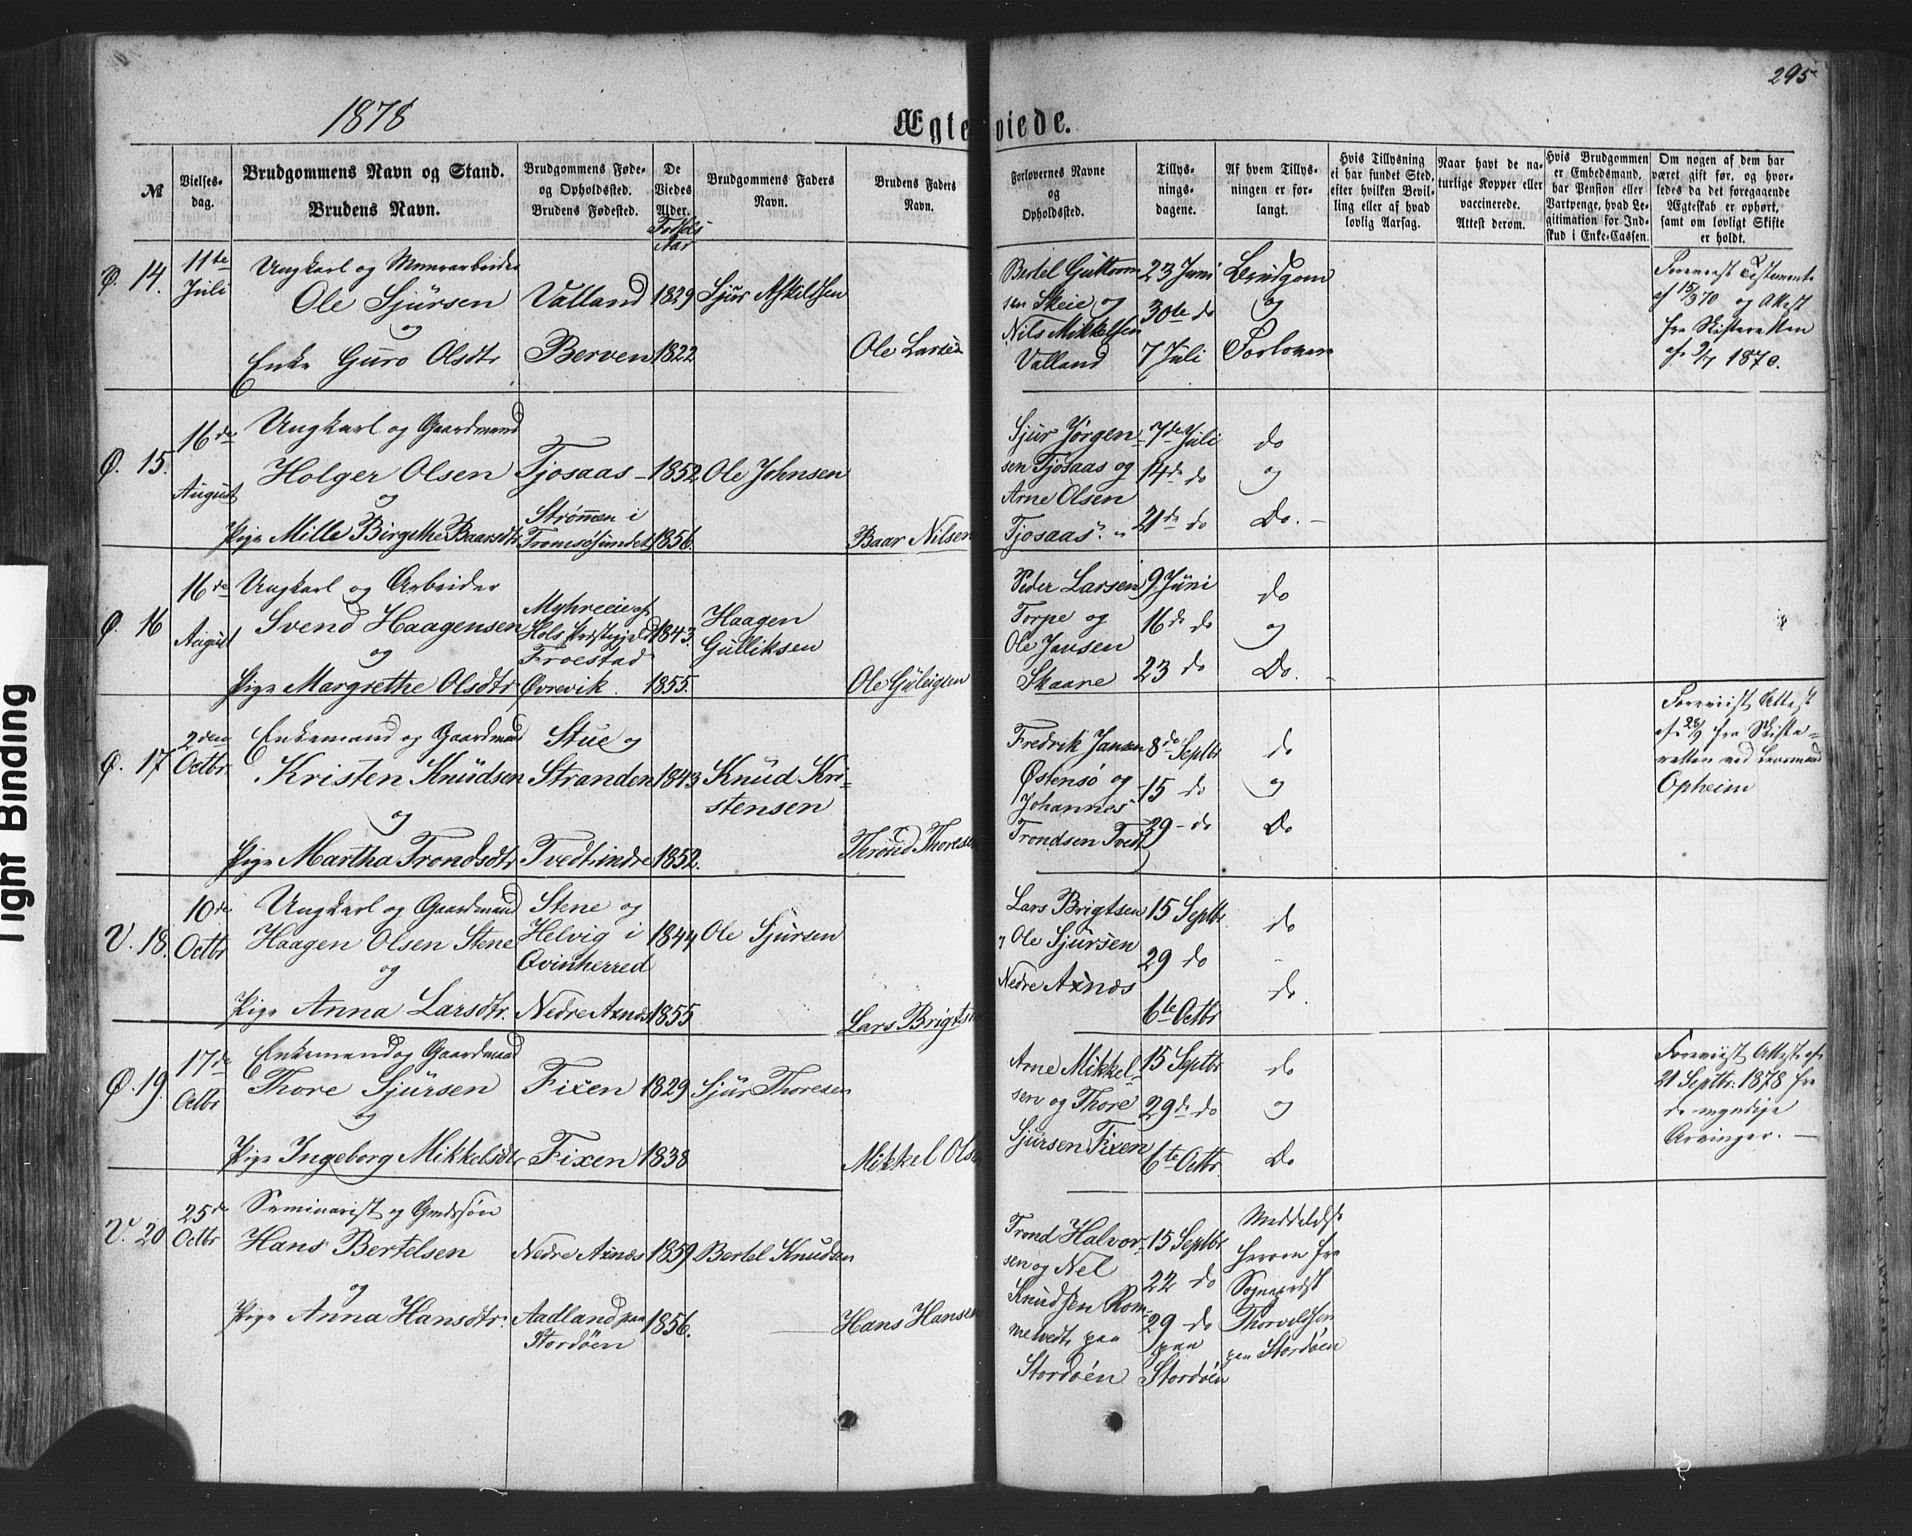 295
1878
Ægteviede.
№
Vielses-
dag.
Brudgommens Navn og Stand.
Brudens Navn.
Brudgommens Føde-
og Opholdssted.
Brudens Fødested.
De
Viedes
Alder.
Fødsels
Aar
Brudgommens Faders
Navn.
Brudens Faders
Navn.
Forlovernes Navne
og
Opholdssted.
Tillys-
nings-
dagene.
Af hvem Tillys-
ningen er for-
langt.
Hvis Tillysning
ei har fundet Sted,
efter hvilken Bevil-
ling eller af hvad
lovlig Aarsag.
Naar havt de na-
turlige Kopper eller
vaccinerede.
Attest derom.
Hvis Brudgommen
er Embedsmand,
har Pension eller
Vartpenge, hvad Le-
gitimation for Ind-
skud i Enke-Cassen.
Om nogen af dem har
været gift før, og hvor-
ledes da det foregaaende
Ægteskab er ophørt,
samt om lovligt Skifte
er holdt.
Ø. 14.
11te
Juli
Ungkarl og Murerarbeider
Ole Sjursen
og
Enke Guro Olsdtr
Valland
Berven
1829
1822
Sjur Askildsen
Ole Larsen
Bertel Guttorm
sen Skeie og
Nils Mikkelsen
Valland
23 Juni
30te do
7 Juli
Brudgom
og
Forlover
Forevist Testamente
af 15/9 70 og Attest
fra Skifteretten
af 9/7 1870.
Ø. 15.
16de
August
Ungkarl og Gaardmand
Holger Olsen
og
Pige Mille Birgethe Baarsdtr
Tjosaas
Strømmen i
Tromsøsundet
1852
1856.
Ole Johnsen
Baar Nilsen
Sjur Jørgen
sen Tjosaas og
Arne Olsen
Tjosaas
7de Juli
14de do
21de do
do
og
Do.
Ø. 16
16de
August
Ungkarl og Arbeider
Svend Haagensen
og
Pige Margrethe Olsdtr
Myhreeie af
Hols Præstegjeld
Froestad
Øvrevik.
1843.
1855.
Haagen
Gulliksen
Ole Guleigsen
Peder Larsen
Torpe og
Ole Jansen
Skaare
9 Juni
16de do
23 do
do
og
Do.
Ø. 17
2den
Octbr.
Enkemand og Gaardmand
Kristen Knudsen
og
Pige Martha Trondsdtr
Stue og
Stranden
Tvedt indre
1843
1852.
Knud Kri-
stensen
Thrond Thoresen
Fredrik Jansen
Østensø og
Johannes
Trondsen Tvedt
8de Septbr
15 do
29 do
do
og
Do
Foreviist Attest
af 28/9 fra Skifte-
retten ved Lensmand
Opheim
V. 18.
10de
Octbr
Ungkarl og Gaardmand
Haagen Olsen Stene
og
Pige Anna Larsdtr.
Stene og
Helvig i
Qvinherred
Nedre Axnæs
1844
1855
Ole Sjursen
Lars Brigtsen
Lars Brigtsen
og Ole Sjursen
Nedre Axnæs
15 Septbr
29 do
6te Octbr
do
do.
Ø. 19.
17de
Octbr
Enkemand og Gaardmand
Thore Sjursen
og
Pige Ingeborg Mikkelsdtr
Fixen
Fixen
1829
1838
Sjur Thoresen
Mikkel Olsen
Arne Mikkel-
sen og Thore
Sjursen Fixen
15 Septbr
29de do
6te Octbr
do
og
Do
Foreviist Attest af
21 Septbr. 1878 fra
de myndige
Arvinger.
V. 20
25de
Octbr
Seminarist og Gmdssøn
Hans Bertelsen
og
Pige Anna Hansdtr.
Nedre Axnæs
Aadland paa
Stordøen
1859
1856.
Bertel Knudsen
Hans Hansen
Trond Halvor-
sen og Nel
Knudsen Rom-
metvedt paa
Stordøen
15 Septbr
22 do
29 do
paa
Stordøen
Meddeldt
herom fra
Sognepræst
Thorvildsen
paa Stordøen
Tight Binding